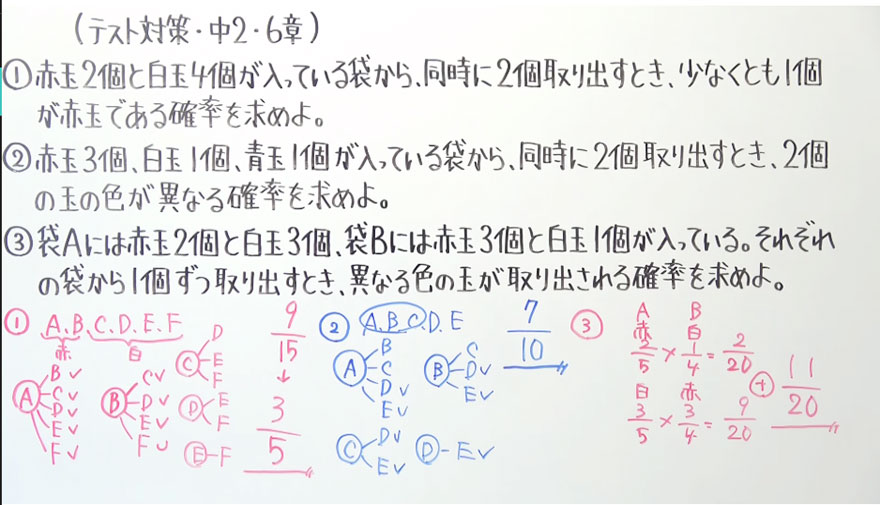 (テスト対策・中2・6章)
①赤玉2個と白玉4個が入っている袋から、同時に2個取り出すとき、少なくとも1個
が赤玉である確率を求めよ。
②赤玉3個、白玉1個、青玉1個が入っている袋から、同時に2個取り出すとき、2個
の玉の色が異なる確率を求めよ。
③袋Aには赤玉2個と白玉3個、袋Bには赤玉3個と白玉1個が入っている。それぞれ
の袋から1個ずつ取り出すとき、異なる色の玉が取り出される確率を求めよ。
① A.B.C.D.E.F
赤 白
A B✓
C✓
D✓
E✓
F✓
B C✓
D✓
E✓
F✓
C D
E
F
D E
F
E-F
9/15
↓
3/5
② A.B.C.D.E
A B
C
D✓
E✓
B C
D✓
E✓
C D✓
E✓
D-E✓
7/10
③
A B
赤 白
2/5 × 1/4 = 2/20
白 赤
3/5 × 3/4 = 9/20
+
11/20